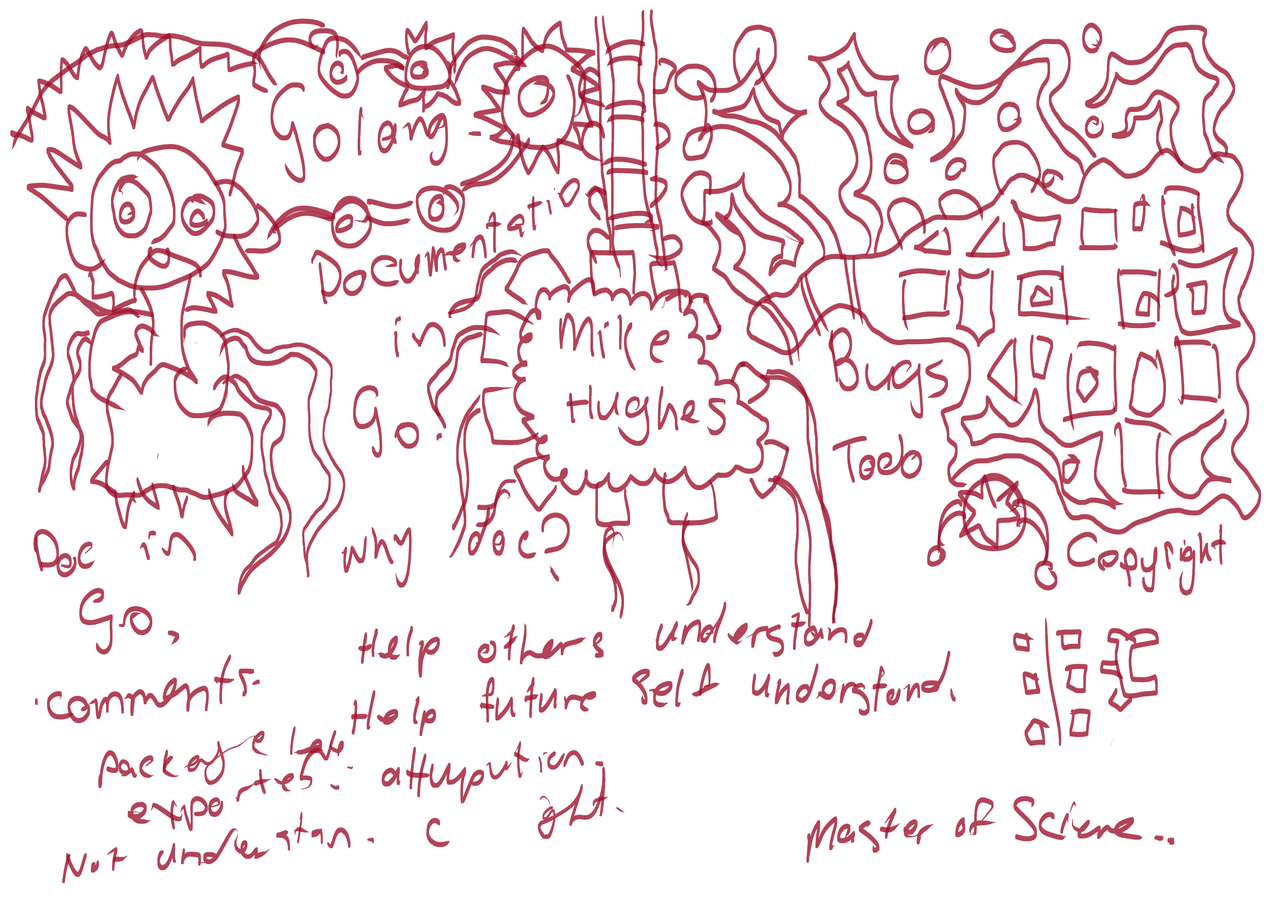 Golang.
Documentation
in
Go.
Mike
Hughes
Bugs
Todo
Copyright
Doc in
Go,
comments.
why doc?
Help others understand
Help future self understand.
package
exportes.
attuputiun.
Not understan. C ght.
Master of Sciene..